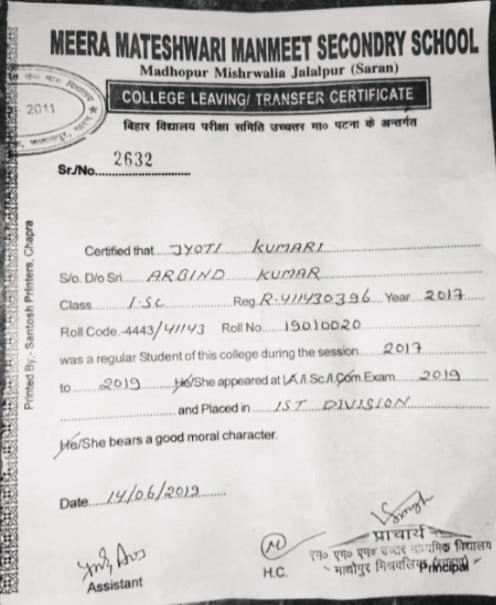 MEERA MATESHWARI MANMEET SECONDRY SCHOOL
Madhopur Mishrwalia Jalalpur (Saran)
COLLEGE LEAVING/ TRANSFER CERTIFICATE
बिहार विद्यालय परीक्षा समिति उच्चतर मा० पटना के अन्तर्गत
2011
Sr./No. 2632
Certified that JYOTI KUMARI
S/o. D/o Sri ARBIND KUMAR
Class I.SC Reg. R-411430396 Year 2017
Roll Code.-4443/41143 Roll No. 19010020
was a regular Student of this college during the session 2017
to 2019 He/She appeared at I.A./I.Sc./I.Com.Exam 2019
and Placed in IST DIVISION
He/She bears a good moral character.
Date 14/06/2019
Assistant
H.C.
Singh
प्राचार्य
एम० एम० एम० उच्चतर माध्यमिक विद्यालय
माधोपुर मिश्रवलिया
Principal
Printed By:- Santosh Printers, Chapra